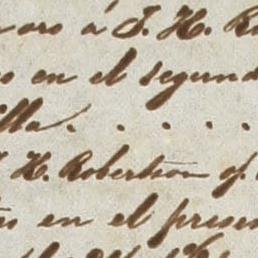 oro á J. H. R
en el segund
illa. . . . .
H. Robertson of.
en el presen